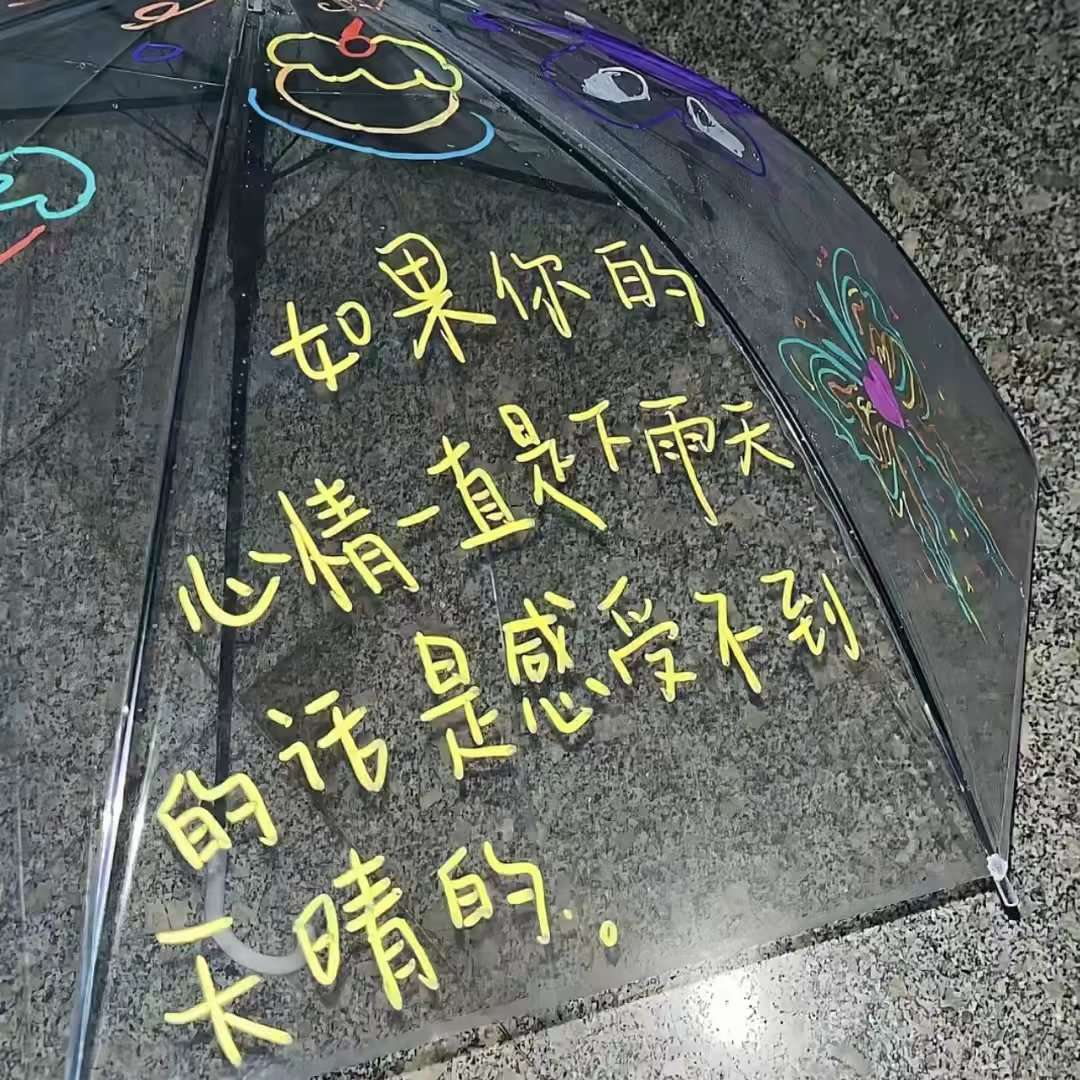 如果你的
心情一直是下雨天
的话是感受不到
天晴的..。